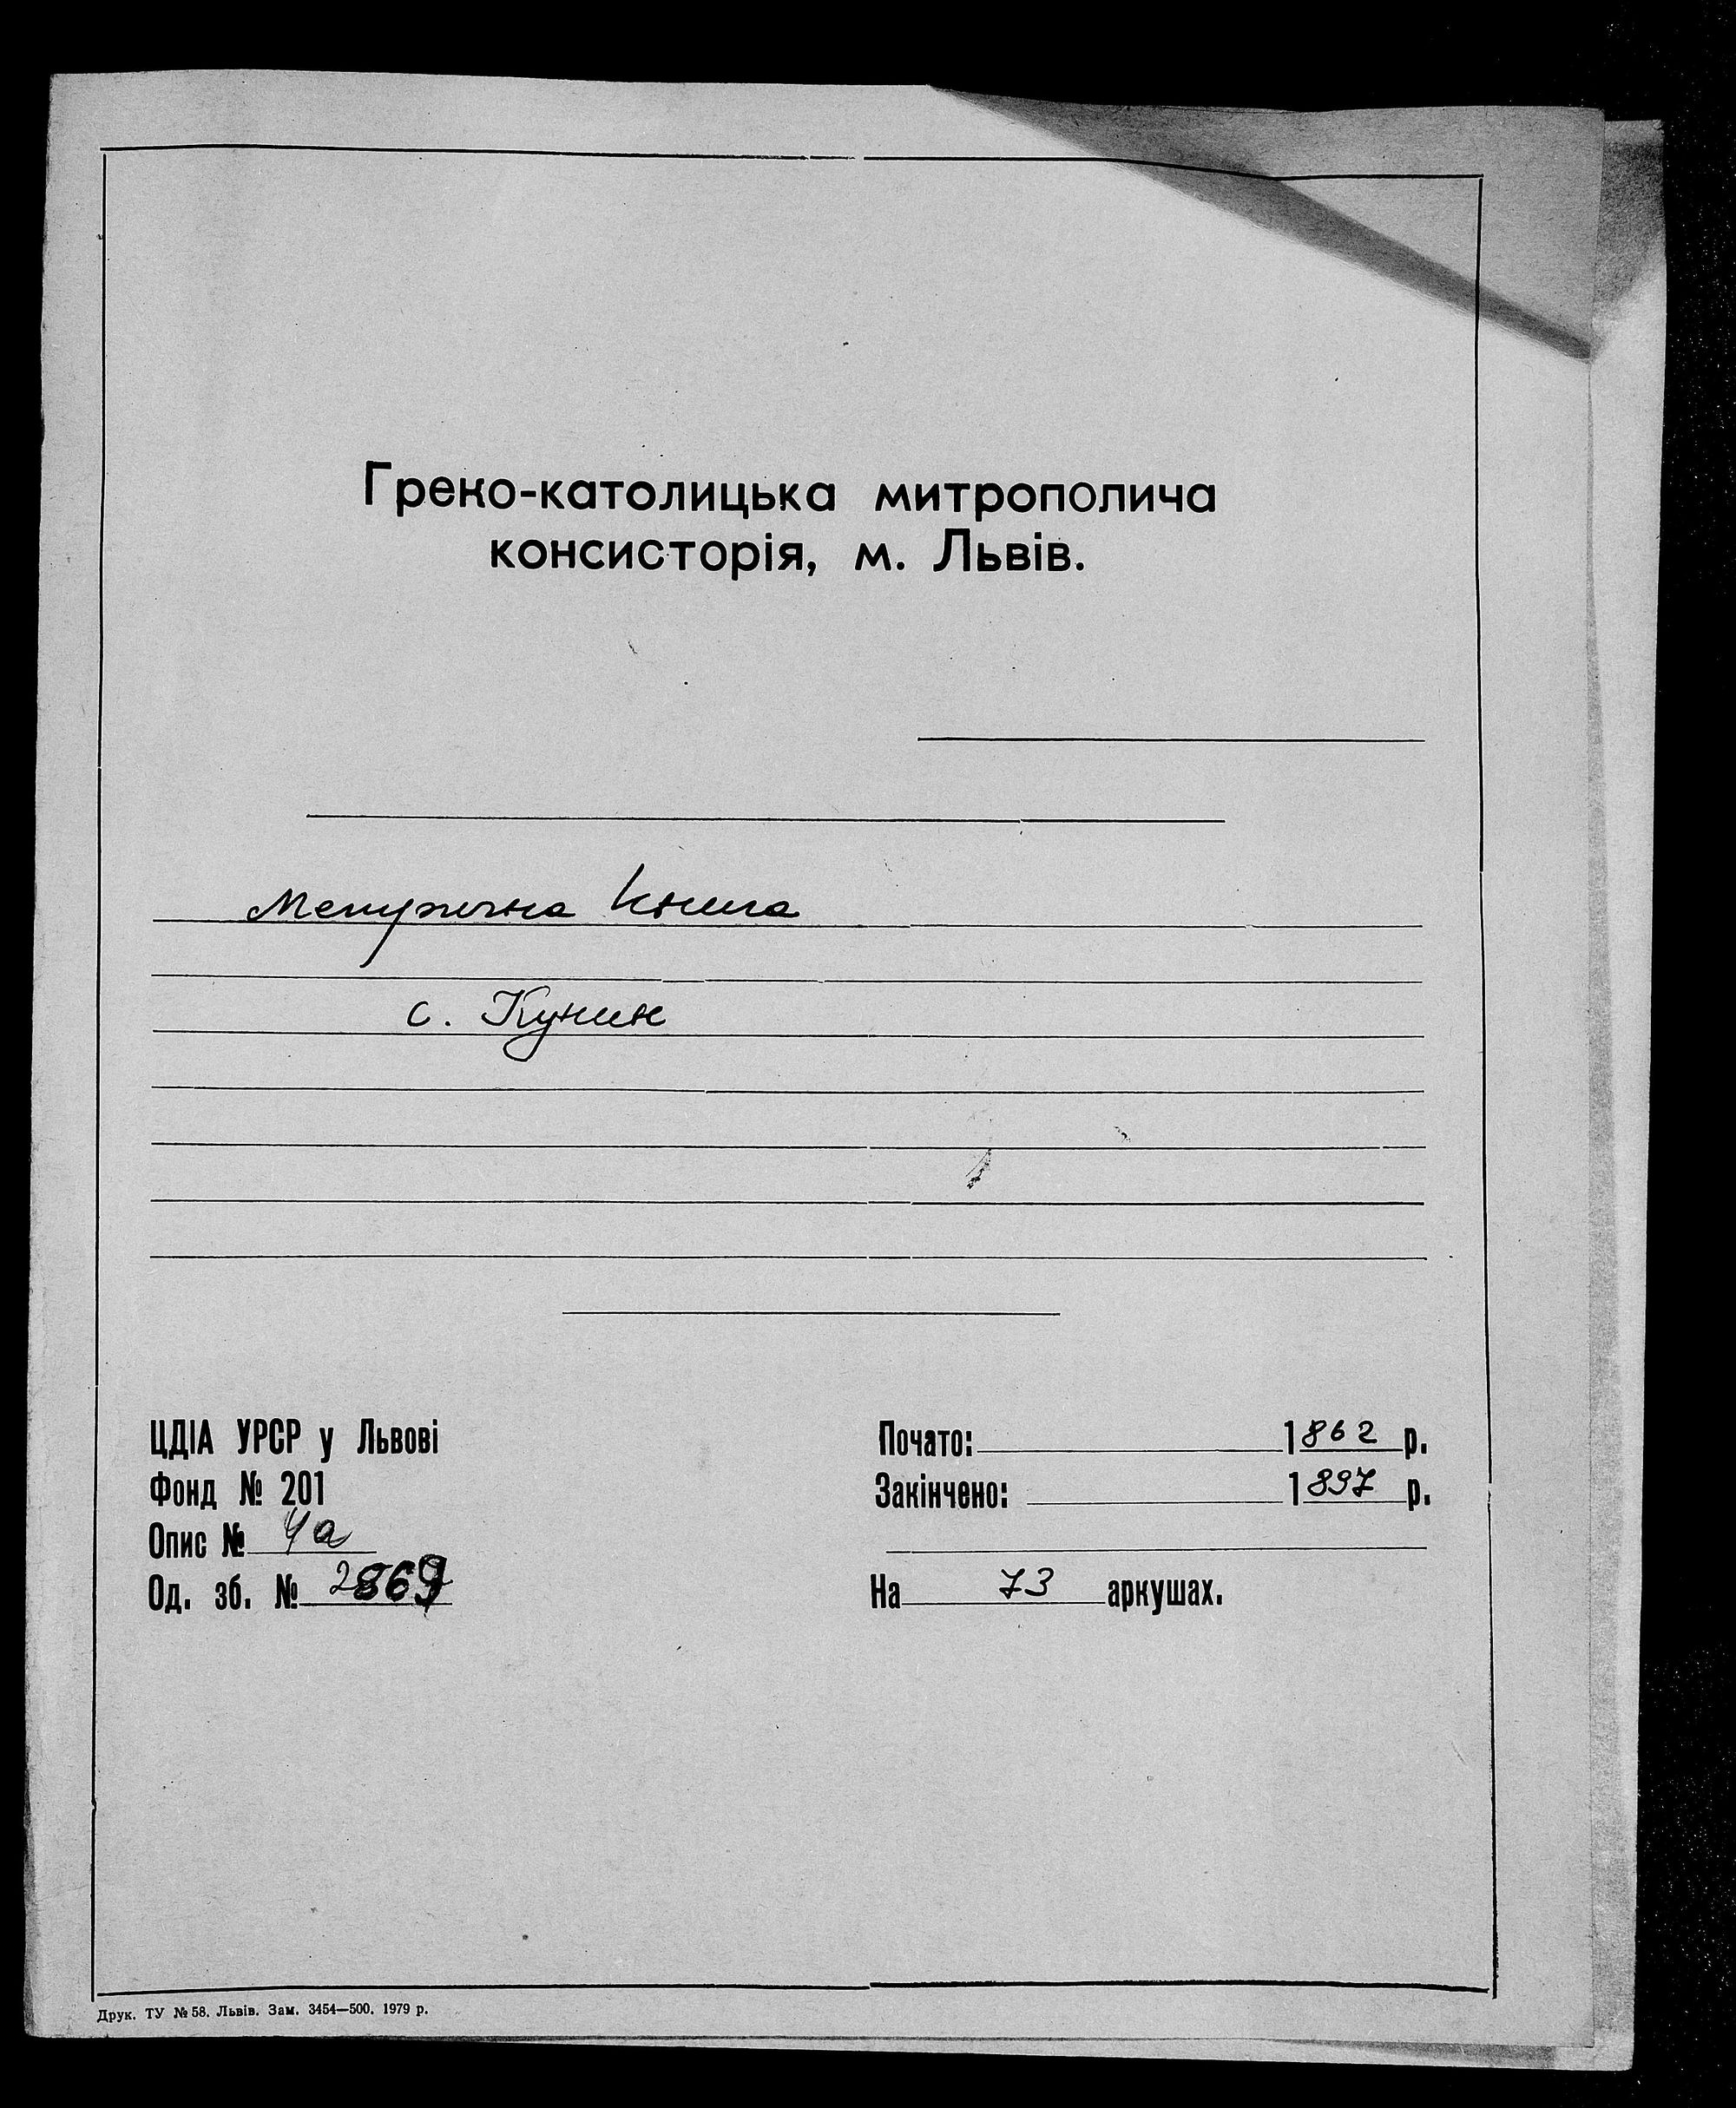 Греко-католицька митрополича
консисторія, м. Львів.
Метрична книга
с. Кунин
ЦДІА УРСР у Львові
Фонд № 201
Опис № 4а
Од. зб. № 2869
Почато: 1862 р.
Закінчено: 1897 р.
На 73 аркушах.
Друк. ТУ № 58. Львів. Зам. 3454—500. 1979 р.